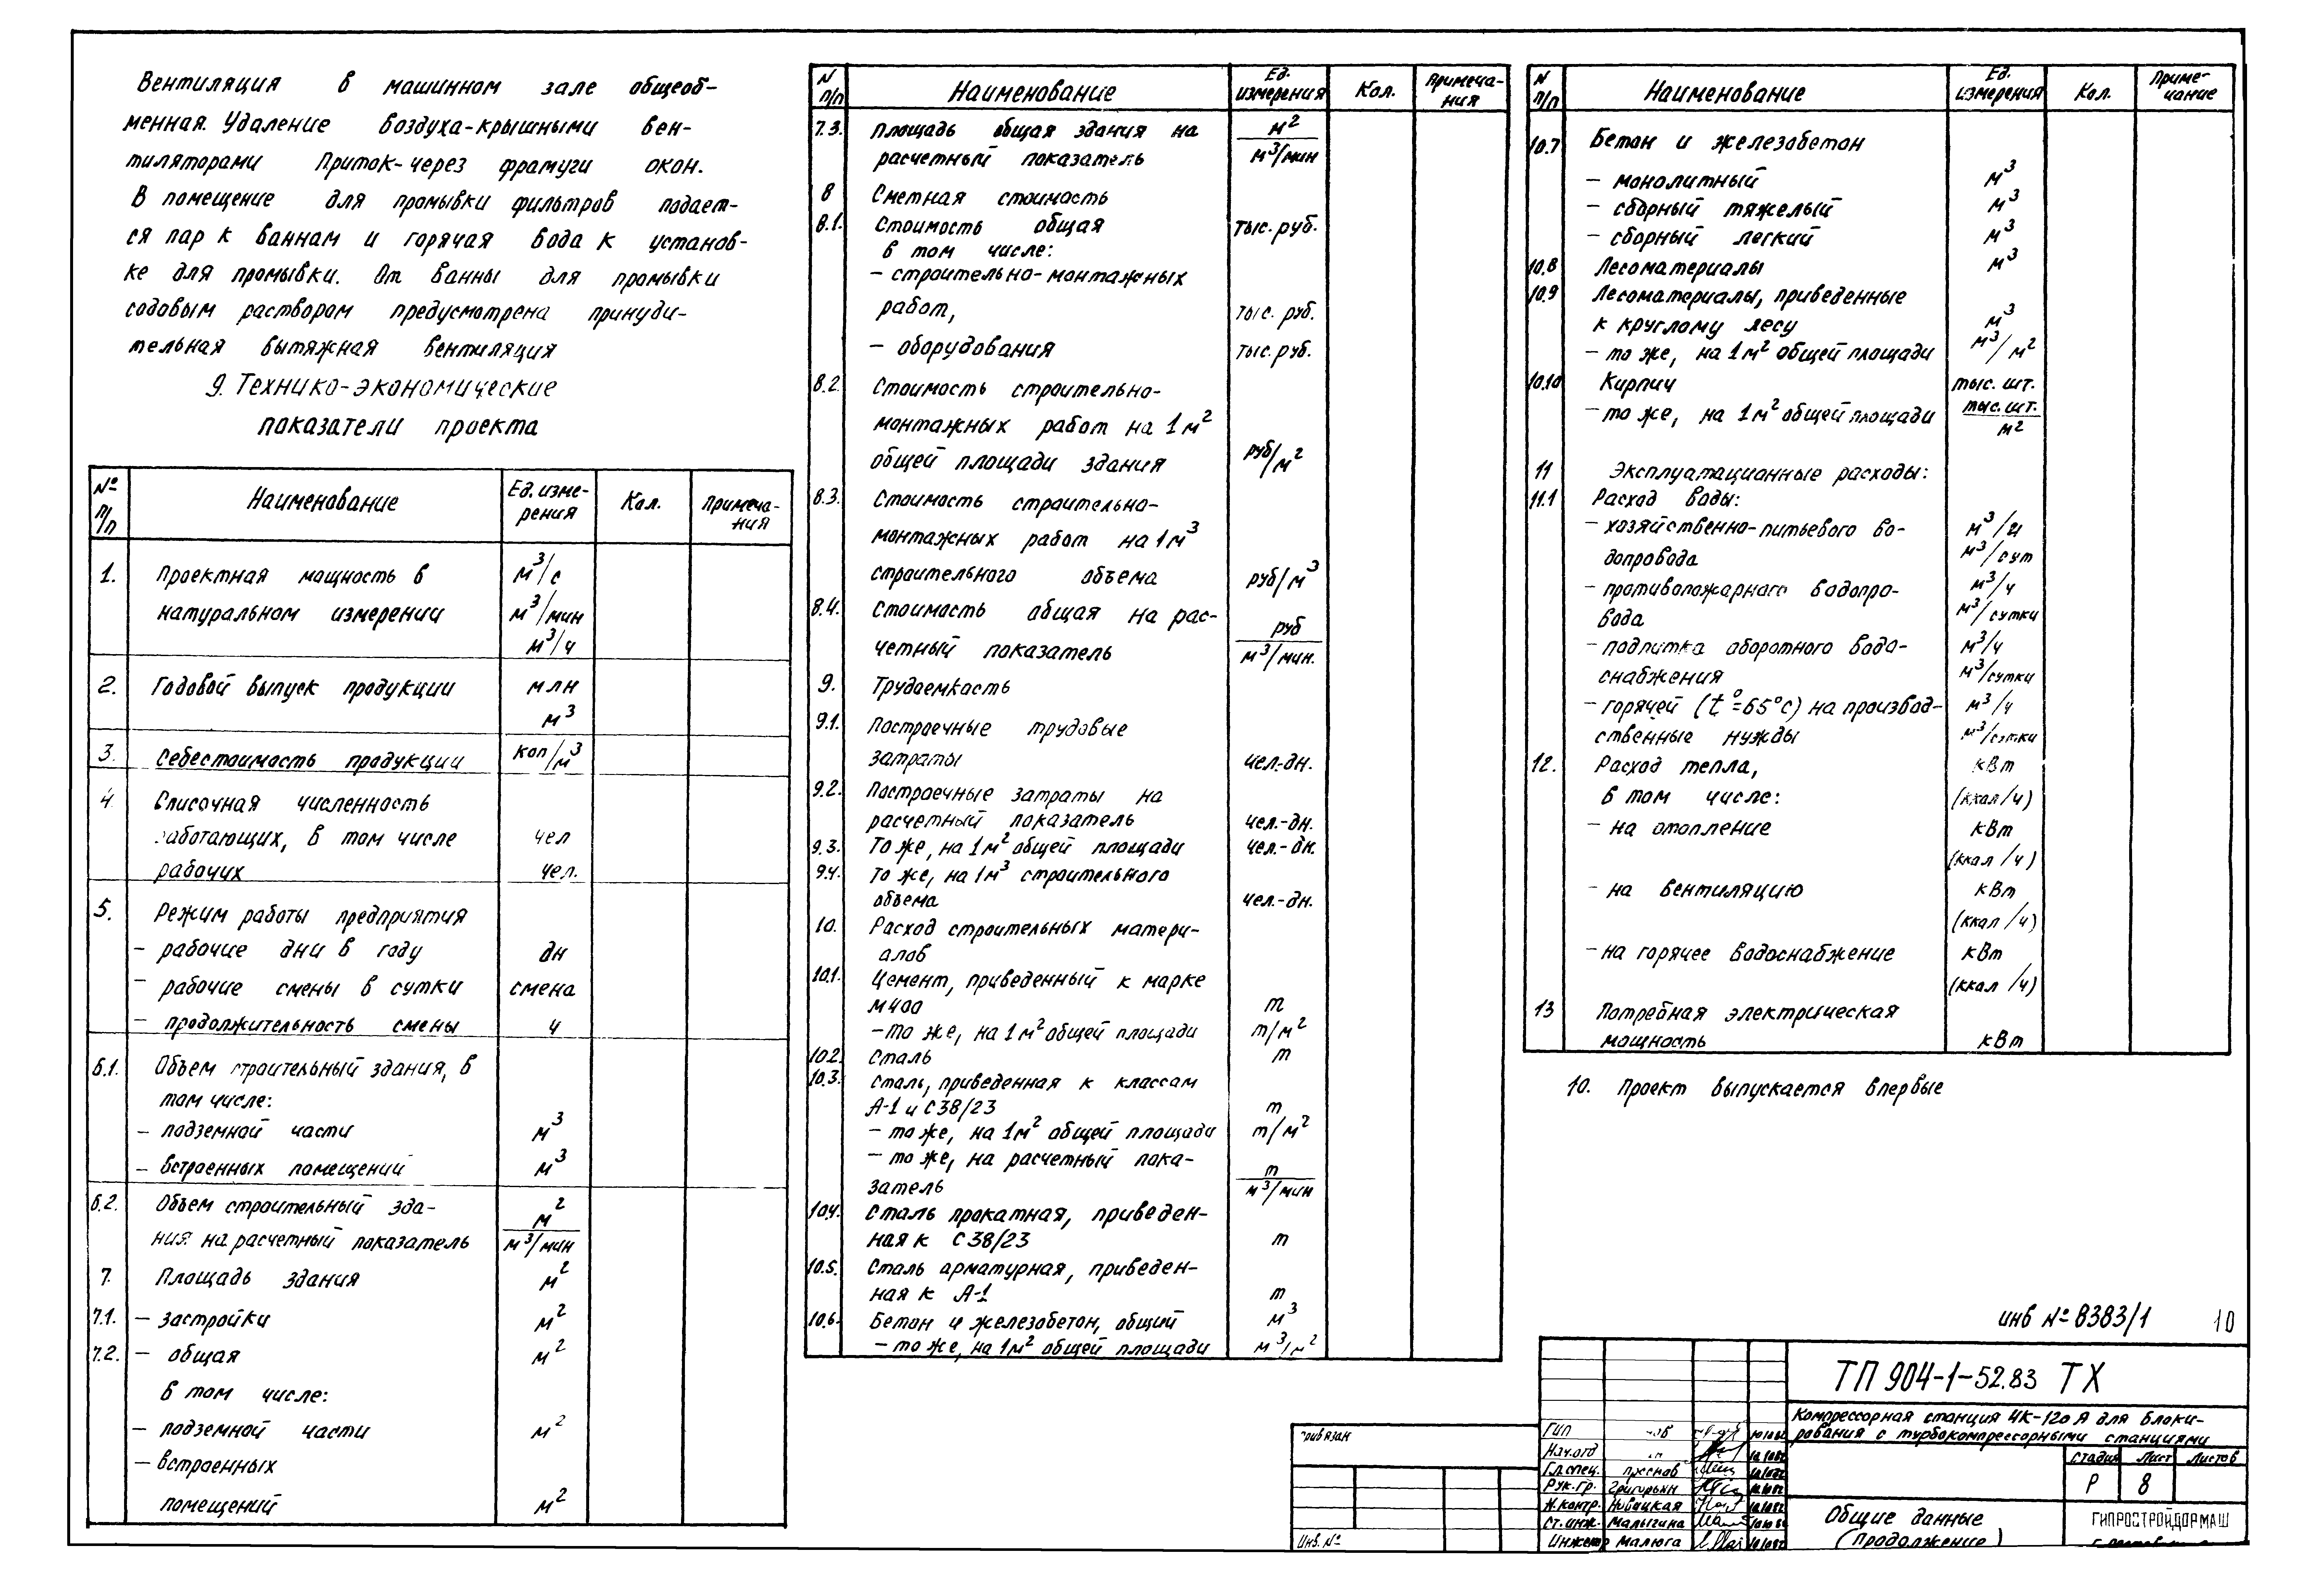 Вентиляция в машинном зале общеоб-
менная. Удаление воздуха-крышными вен-
тиляторами Приток-через фрамуги окон.
В помещение для промывки фильтров подает-
ся пар к ваннам и горячая вода к установ-
ке для промывки. От ванны для промывки
содовым раствором предусмотрена принуди-
тельная вытяжная вентиляция
9. Технико-экономические
показатели проекта
№ п/п Наименование Ед. изме-рения Кол. Примеча-ния
1. Проектная мощность в м³/с
натуральном измерении м³/мин
м³/ч
2. Годовой выпуск продукции млн
м³
3. Себестоимость продукции коп/м³
4. Списочная численность
работающих, в том числе чел
рабочих чел.
5. Режим работы предприятия
- рабочие дни в году дн
- рабочие смены в сутки смена
- продолжительность смены ч
6.1. Объем строительный здания, в
том числе:
- подземной части м³
- встроенных помещений м³
6.2. Объем строительный зда- м²
ния на расчетный показатель м³/мин
7. Площадь здания м²
7.1. - застройки м²
7.2. - общая м²
в том числе:
- подземной части м²
- встроенных
помещений м²
N п/п Наименование Ед. измерения Кол. Примеча-ния
7.3. Площадь общая здания на м²
расчетный показатель м³/мин
8 Сметная стоимость
8.1. Стоимость общая тыс. руб.
в том числе:
- строительно-монтажных
работ, тыс. руб.
- оборудования тыс. руб.
8.2. Стоимость строительно-
монтажных работ на 1м²
общей площади здания руб/м²
8.3. Стоимость строительно-
монтажных работ на 1м³
строительного объема руб/м³
8.4. Стоимость общая на рас- руб
четный показатель м³/мин.
9. Трудоемкость
9.1. Построечные трудовые
затраты чел.-дн.
9.2. Построечные затраты на
расчетный показатель чел.-дн.
9.3. То же, на 1м² общей площади чел.-дн.
9.4. То же, на 1м³ строительного
объема чел.-дн.
10. Расход строительных матери-
алов
10.1. Цемент, приведенный к марке
М400 т
- то же, на 1м² общей площади т/м²
10.2. Сталь т
10.3. Сталь, приведенная к классам
А-1 и С38/23 т
- то же, на 1м² общей площади т/м²
- то же, на расчетный пока- т
затель м³/мин
10.4. Сталь прокатная, приведен-
ная к С38/23 т
10.5. Сталь арматурная, приведен-
ная к А-1 т
10.6. Бетон и железобетон, общий м³
- то же, на 1м² общей площади м³/м²
N п/п Наименование Ед. измерения Кол. Приме-чание
10.7 Бетон и железобетон
- монолитный м³
- сборный тяжелый м³
- сборный легкий м³
10.8 Лесоматериалы м³
10.9 Лесоматериалы, приведенные
к круглому лесу м³
- то же, на 1м² общей площади м³/м²
10.10 Кирпич тыс. шт.
- то же, на 1м² общей площади тыс. шт.
м²
11 Эксплуатационные расходы:
11.1 Расход воды:
- хозяйственно-питьевого во- м³/ч
допровода м³/сут
- противопожарного водопро- м³/ч
вода м³/сутки
- подпитка оборотного водо- м³/ч
снабжения м³/сутки
- горячей (t°=65°С) на производ- м³/ч
ственные нужды м³/сутки
12. Расход тепла, кВт
в том числе: (ккал/ч)
- на отопление кВт
(ккал/ч)
- на вентиляцию кВт
(ккал/ч)
- на горячее водоснабжение кВт
(ккал/ч)
13 Потребная электрическая
мощность кВт
10. Проект выпускается впервые
инв № 8383/1 10
ТП 904-1-52.83 ТХ
Компрессорная станция ЧК-120А для блоки-
рования с турбокомпрессорными станциями
Стадия Лист Листов
Р 8
Общие данные
(продолжение)
ГИПРОСТРОЙДОРМАШ
Привязан
Инв. №
ГИП
Нач. отд
Гл. спец.
Рук. гр. Григорьян
Н. контр. Новицкая
Ст. инж. Малыгина
Инженер Малюга